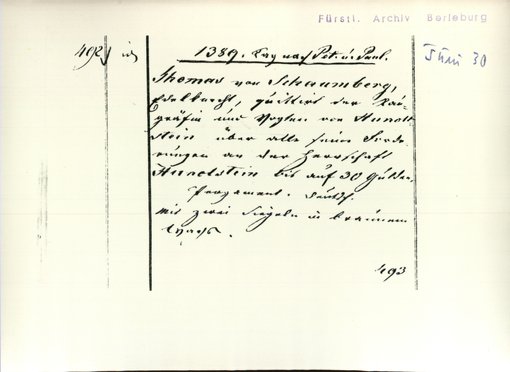 Fürstl. Archiv Berleburg
492
1389. Tag nach Pet. u. Paul.
Juni 30
Thomas von Schaumberg,
Edelknecht, quittirt der Rau-
gräfin und Vogtin von Hunolt-
stein über alle seine Forde-
rungen an der Herrschaft
Hunolstein bis auf 30 Gulden.
Pergament. Deutsch.
mit zwei Siegeln in braunem
Wachs.
493